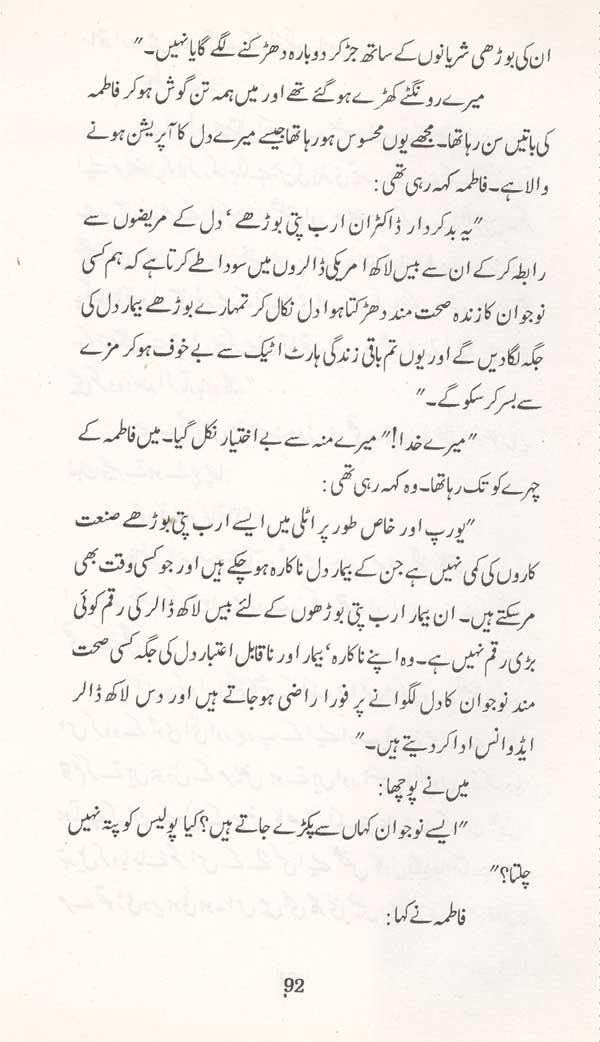 ان کی بوڑھی شریانوں کے ساتھ جڑ کر دوبارہ دھڑکنے لگے گا یا نہیں۔"
میرے رونگٹے کھڑے ہو گئے تھے اور میں ہمہ تن گوش ہو کر فاطمہ
کی باتیں سن رہا تھا۔ مجھے یوں محسوس ہو رہا تھا جیسے میرے دل کا آپریشن ہونے
والا ہے۔ فاطمہ کہہ رہی تھی:
"یہ بدکردار ڈاکٹر ان ارب پتی بوڑھے ‘ دل کے مریضوں سے
رابطہ کر کے ان سے بیس لاکھ امریکی ڈالروں میں سودا طے کرتا ہے کہ ہم کسی
نوجوان کا زندہ صحت مند دھڑکتا ہوا دل نکال کر تمہارے بوڑھے بیمار دل کی
جگہ لگا دیں گے اور یوں تم باقی زندگی ہارٹ اٹیک سے بے خوف ہو کر مزے
سے بسر کر سکو گے۔"
"میرے خدا!" میرے منہ سے بے اختیار نکل گیا۔ میں فاطمہ کے
چہرے کو تک رہا تھا۔ وہ کہہ رہی تھی:
"یورپ اور خاص طور پر اٹلی میں ایسے ارب پتی بوڑھے صنعت
کاروں کی کمی نہیں ہے جن کے بیمار دل ناکارہ ہو چکے ہیں اور جو کسی وقت بھی
مر سکتے ہیں۔ ان بیمار ارب پتی بوڑھوں کے لئے بیس لاکھ ڈالر کی رقم کوئی
بڑی رقم نہیں ہے۔ وہ اپنے ناکارہ‘ بیمار اور ناقابل اعتبار دل کی جگہ کسی صحت
مند نوجوان کا دل لگوانے پر فورا راضی ہو جاتے ہیں اور دس لاکھ ڈالر
ایڈوانس ادا کر دیتے ہیں۔"
میں نے پوچھا:
"ایسے نوجوان کہاں سے پکڑے جاتے ہیں؟ کیا پولیس کو پتہ نہیں
چلتا؟"
فاطمہ نے کہا:
92